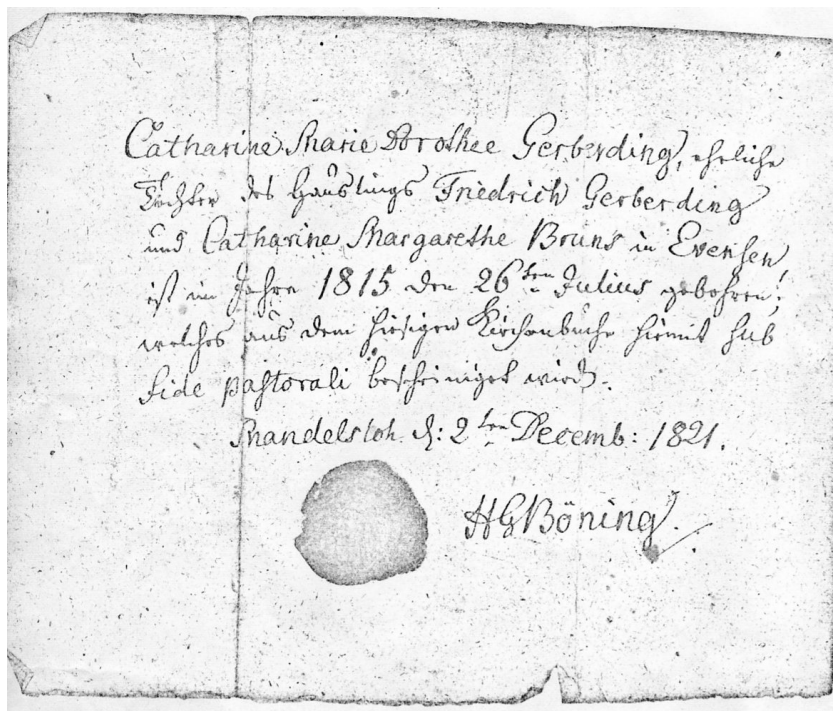 Catharine Marie Dorothee Gerberding, eheliche
Tochter des Häuslings Friedrich Gerberding
und Catharine Margarethe Bruns in Evensen,
ist im Jahre 1815 den 26sten Julius gebohren;
welches aus dem hiesigen Kirchenbuche hiemit sub
fide pastorali bescheiniget wird.
Mandelsloh d: 2ten Decemb: 1821.
HGBöning.